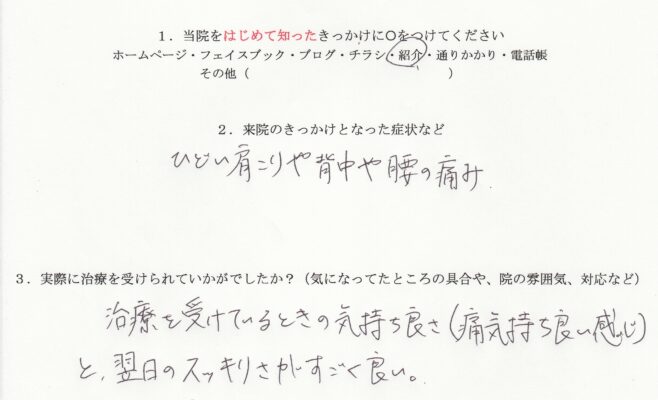 1．当院をはじめて知ったきっかけに○をつけてください
ホームページ・フェイスブック・ブログ・チラシ・紹介・通りかかり・電話帳
その他（　　　　　　　　　　　　　）
2．来院のきっかけとなった症状など
ひどい肩こりや背中や腰の痛み
3．実際に治療を受けられていかがでしたか？（気になってたところの具合や、院の雰囲気、対応など）
治療を受けているときの気持ち良さ（痛気持ち良い感じ）
と、翌日のスッキリさがすごく良い。